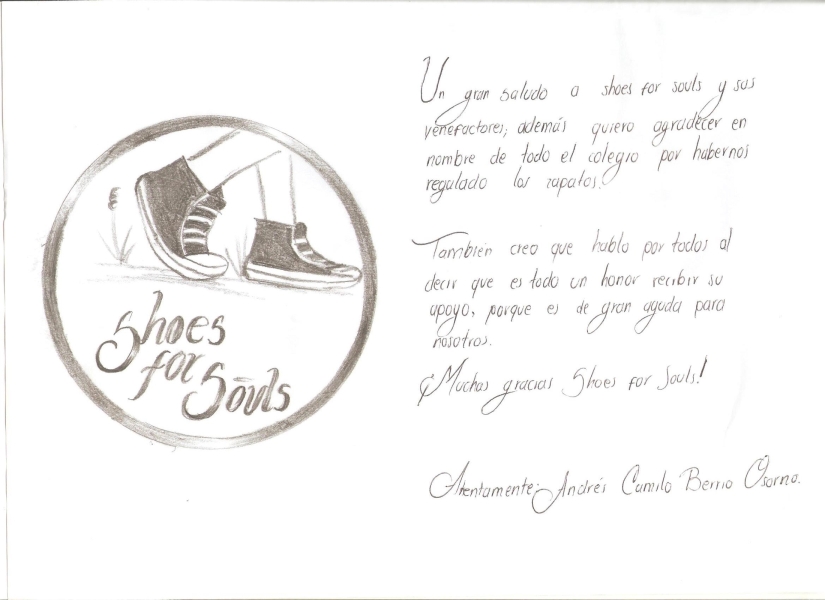 Shoes
for
Souls
Un gran saludo a shoes for souls y sus
venefactores, además quiero agradecer en
nombre de todo el colegio por habernos
regalado los zapatos.
También creo que hablo por todos al
decir que es todo un honor recibir su
apoyo, porque es de gran ayuda para
nosotros.
¡Muchas gracias Shoes for Souls!
Atentamente: Andrés Camilo Berrio Osorno.